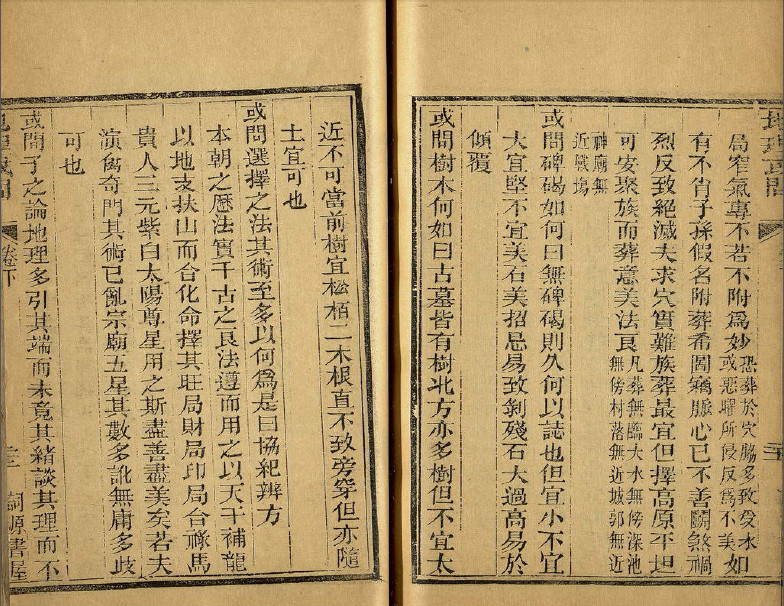 局窄氣專不若不附爲妙恐葬於穴腦多致受水或惡曜所侵反爲不美如
有不肖子孫假名附葬希圖竊脈心已不善鬬煞禍
烈反致絕滅夫求穴實難族葬最宜但擇高原平坦
可安聚族而葬意美法良凡葬無臨大水無傍深池無傍村落無近城郭無近
神廟無近戰塲
或問碑碣如何曰無碑碣則久何以誌也但宜小不宜
大宜堅不宜美石美招忌易致剝殘石大過高易於
傾覆
或問樹木何如曰古墓皆有樹北方亦多樹但不宜太
近不可當前樹宜松栢二木根直不致旁穿但亦隨
土宜可也
或問選擇之法其術至多以何爲是曰協紀辨方
本朝之歷法實千古之良法遵而用之以天干補龍
以地支扶山而合化命擇其旺局財局印局合祿馬
貴人三元紫白太陽尊星用之斯盡善盡美矣若夫
演禽奇門其術已亂宗廟五星其數多訛無庸多歧
可也
或問子之論地理多引其端而未竟其緒談其理而不
地理或問
卷下
三
嗣源書屋